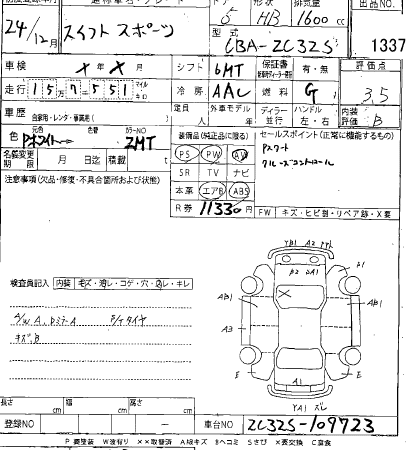 5 HB 1600 cc
出品NO
24/12月 スイフト スポーツ
型式 CBA-ZC32S 1337
車検 X 年 X 月 シフト 6MT 保証書 有・無 評価点
走行 157551 マイル キロ 冷房 AAC 燃料 G 3.5
自家用・レンタ・事業用 定員 人 外車モデル 年 ディーラー 並行 ハンドル 左・右 内装評価 B
色 元色 色替 カラーNO ZMT
装備品(純正品に限る) セールスポイント(正常に機能するもの)
名義変更期限 月 日迄 積載 PS PW AW
Pスタート
クルーズコントロール
SR TV ナビ
注意事項(欠品・修復・不具合箇所および状態)
本革 エアB ABS
R券 11330 円
FW キズ・ヒビ割・リペア跡・X要
検査員記入 内装
YB1 A2
A2 DA1
AB1 AB1
A3
E E
A1
YA1 スレ
キズ、B
長さ cm 幅 cm 高さ cm
登録NO - 車台NO ZC32S-109723
P 要塗装 W波有り XX取替済 A線キズ Bヘコミ Sさび X要交換 C腐食